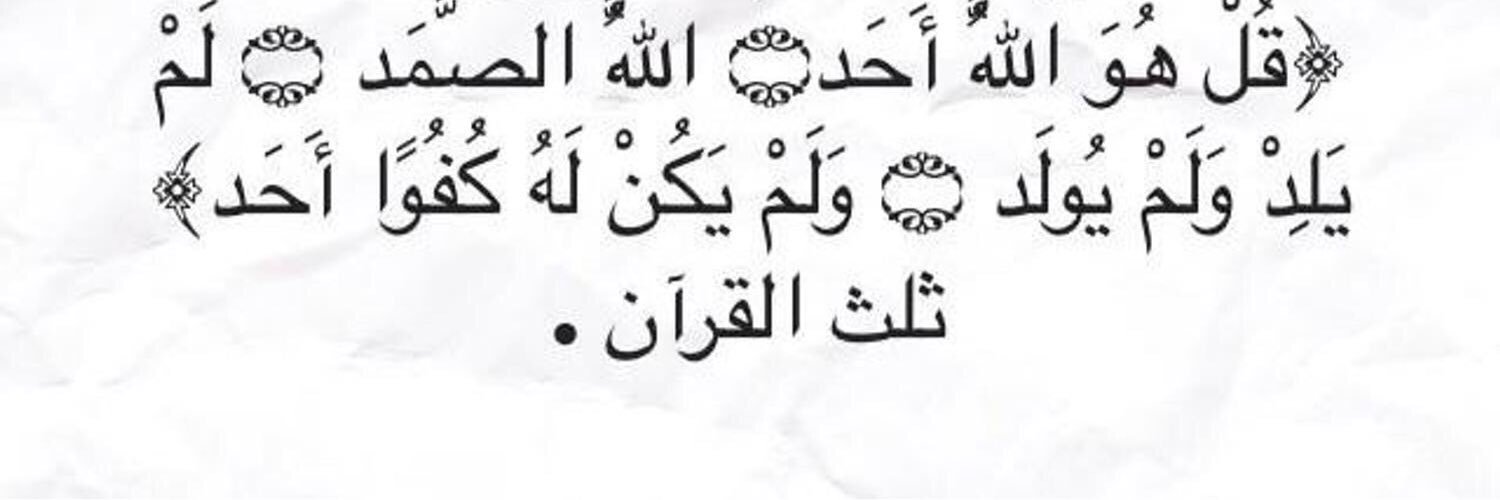 ﴿قُلْ هُوَ اللهُ أَحَد۝ اللهُ الصَّمَد ۝ لَمْ
يَلِدْ وَلَمْ يُولَد ۝ وَلَمْ يَكُنْ لَهُ كُفُوًا أَحَد﴾
ثلث القرآن .